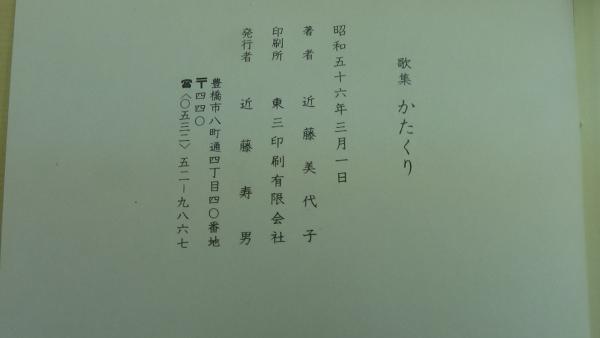 歌集 かたくり
昭和五十六年三月一日
著者 近藤美代子
印刷所 東三印刷有限会社
発行者 近藤寿男
豊橋市八町通四丁目四〇番地
〒四四〇
☎〈〇五三二〉五二－九八六七